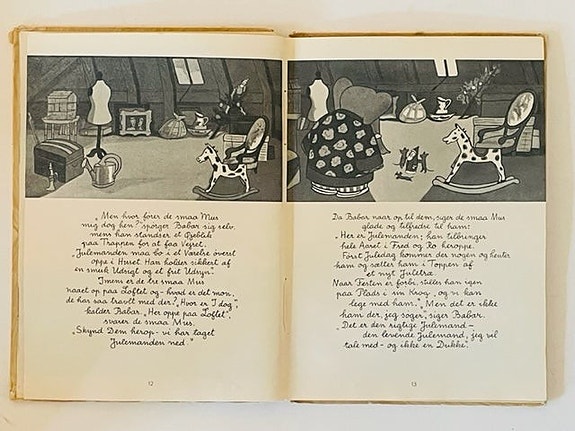 „Men hvor fører de smaa Mus
mig dog hen?" spørger Babar sig selv,
mens han standser et Øjeblik
paa Trappen for at faa Vejret.
„Julemanden maa bo i et Værelse øverst
oppe i Huset. Han holder sikkert af
en smuk Udsigt og et frit Udsyn."
Imens er de tre smaa Mus
naaet op paa Loftet og – hvad er det mon,
de har saa travlt med der? „Hvor er I dog",
kalder Babar. „Her oppe paa Loftet",
svarer de smaa Mus.
„Skynd Dem herop – vi har taget
Julemanden ned."
12
Da Babar naar op til dem, siger de smaa Mus
glade og tilfredse til ham:
„Her er Julemanden; han tilbringer
hele Aaret i Fred og Ro heroppe.
Først Juledag kommer der nogen og henter
ham og sætter ham i Toppen af
et nyt Juletræ.
Naar Festen er forbi, stilles han igen
paa Plads i sin Krog, og vi kan
lege med ham." „Men det er ikke
ham der, jeg søger", siger Babar.
„Det er den rigtige Julemand –
den levende Julemand, jeg vil
tale med – og ikke en Dukke".
13